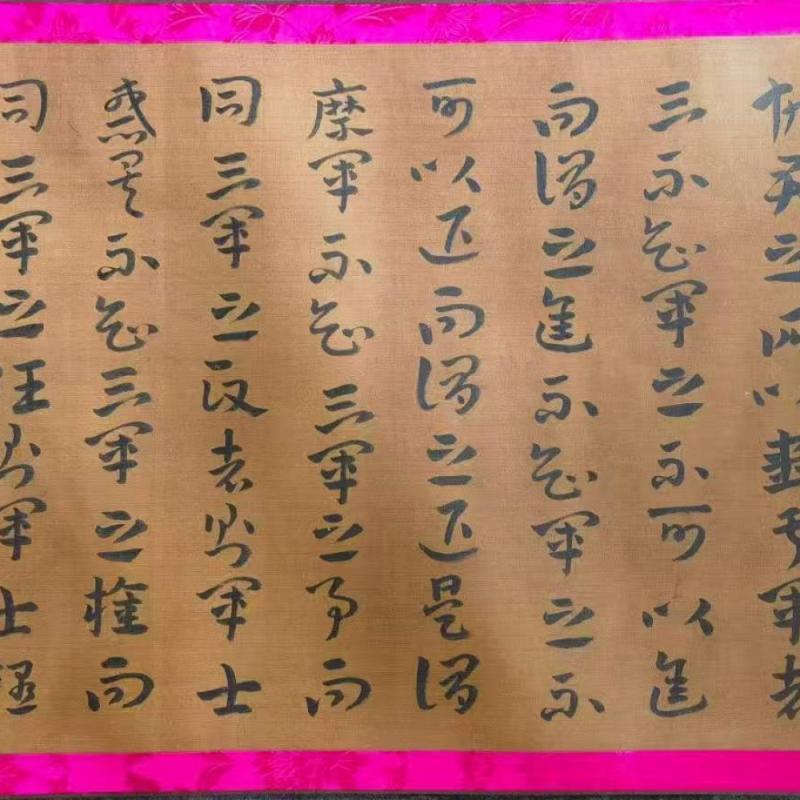 故君之所以患于軍者
三不知軍之不可以進
而謂之進不知軍之不
可以退而謂之退是謂
縻軍不知三軍之事而
同三軍之政者則軍士
惑矣不知三軍之權而
同三軍之任則軍士疑